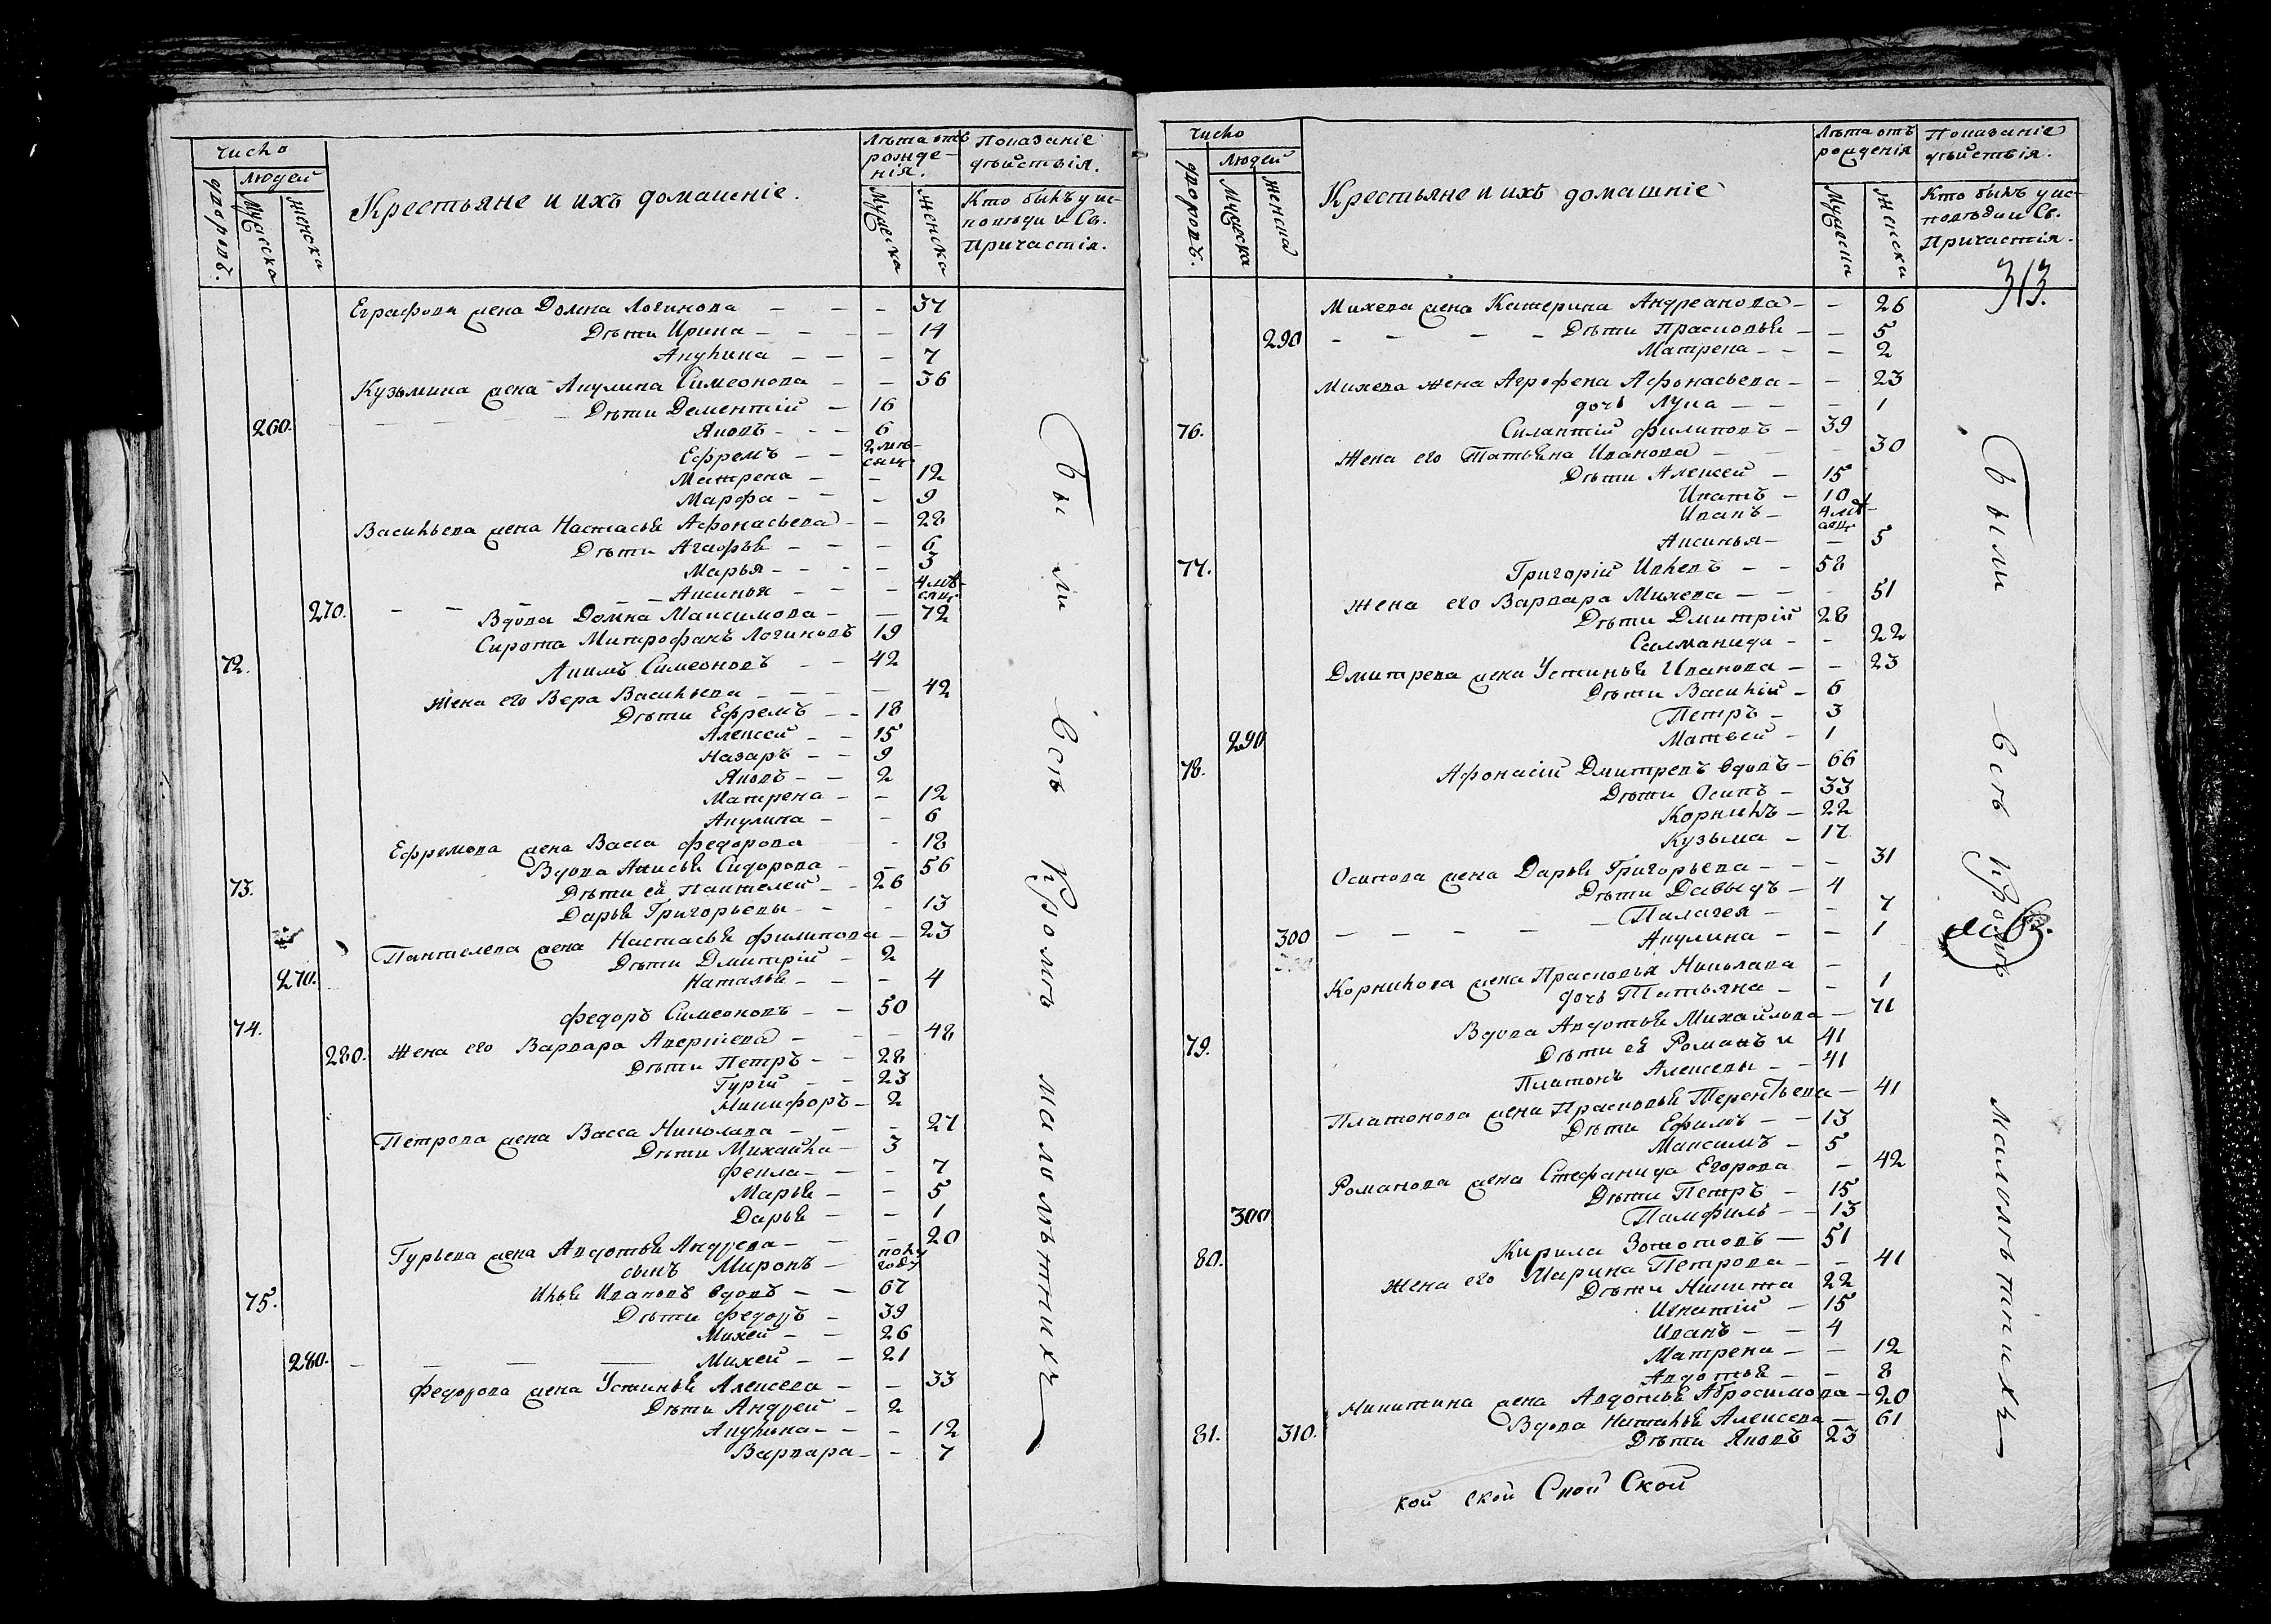 Число
людей
дворовъ.
Мужеска
женска
Крестьяне и ихъ домашніе.
Лѣта отъ рожденія.
Мужеска
Женска
Показаніе дѣйствія.
Кто былъ у исповѣди и Св. Причастія.
Еграфова жена Домна Логинова – – – 37
Дѣти Ирина – – – – 14
Акулина – – – 7
Кузьмина жена Акулина Симеонова – – 36
Дѣти Дементій – 16
260. Яковъ – – – 6
Ефремъ – – 2 мѣсяц.
Матрена – – 12
Марфа – – – 9
Васильева жена Настасья Афонасьева – – 28
Дѣти Агафья – – – 6
Марья – – – – 3
Аксинья – – – 4 мѣсяц.
270. – – – Вдова Домна Максимова – – 72
Сирота Митрофанъ Логиновъ 19
72. Акимъ Симеоновъ – – 42
Жена его Вера Васильева – – – – 42
Дѣти Ефремъ – – 18
Алексей – – 15
Назаръ – – 9
Яковъ – – 2
Матрена – – 12
Акулина – – 6
Ефремова жена Васса Федорова – 18
Вдова Анисья Сидорова – – 56
73. Дѣти ея Пантелей – – 26
Дарья Григорьевы – – – 13
Пантелева жена Настасья Филипова – 23
Дѣти Дмитрій – 2
270. Наталья – – – 4
74. Федоръ Симеоновъ – – 50
280. Жена его Варвара Аверіева – – – 48
Дѣти Петръ – – 28
Гурій – – 23
Никифоръ – 2
Петрова жена Васса Николава – – – 27
Дѣти Михайла – 3
Фекла – – – 7
Марья – – 5
Дарья – – 1
Гурьева жена Авдотья Андрева – – – 20
сынъ Миронъ – полу году
75. Илья Ивановъ вдовъ – – 67
Дѣти Федоръ – 39
Михей – – 26
280. – – – – Михей – – 21
Федорова жена Устинья Алексева – – 33
Дѣти Андрей – 2
Акулина – – – 12
Варвара – – 7
Были Всѣ кромѣ малолѣтнихъ
Число
людей
дворовъ.
Мужеска
женска
Крестьяне и ихъ домашніе
Лѣта отъ рожденія
Мужеска
Женска
Показаніе дѣйствія.
Кто былъ у исповѣди и Св. Причастія.
313.
Михева жена Катерина Андреанова – – 26
290 – – – – Дѣти Прасковья – – 5
Матрена – – – 2
Михева жена Агрофена Афонасьева – – 23
дочь Лукa – – – 1
76. Силантій Филиповъ – 39
Жена его Татьяна Иванова – – – 30
Дѣти Алексей – 15
Ипатъ – 10
Иванъ – 4 мѣсяц.
Аксинья – – 5
77. Григорій Ивлевъ – – 58
Жена его Варвара Михева – – – 51
Дѣти Дмитрій 28
Салманида – – 22
Дмитрева жена Устинья Иванова – – 23
Дѣти Василій – 6
Петръ – 3
290 Матвей – 1
78. Афонасій Дмитревъ вдовъ – 66
Дѣти Осипъ – 33
Корнилъ – 22
Кузьма – 17
Осипова жена Дарья Григорьева – – – 31
Дѣти Давыдъ – 4
– Палагея – – 7
300 – – – – – Акулина – – 1
Корнилова жена Прасковья Николава –
дочь Татьяна – – 1
Вдова Авдотья Михайлова – 71
79. Дѣти ея Романъ и 41
Платонъ Алексевы – – 41
Платонова жена Прасковья Терентьева – 41
Дѣти Ефимъ – – 13
Максимъ – 5
Романова жена Стефанида Егорова – 42
Дѣти Петръ – 15
300 Памфилъ – – 13
80. Кирила Зототовъ – 51
Жена его Марина Петрова – – 41
Дѣти Никита 22
Игнатій – 15
Иванъ – – 4
Матрена – – 12
Авдотья – – 8
Никитина жена Авдотья Абросимова – 20
81. 310. Вдова Наталья Алексева – 61
Дѣти Яковъ 23
кой ской Скои Ской
Были Всѣ кромѣ малолѣтнихъ